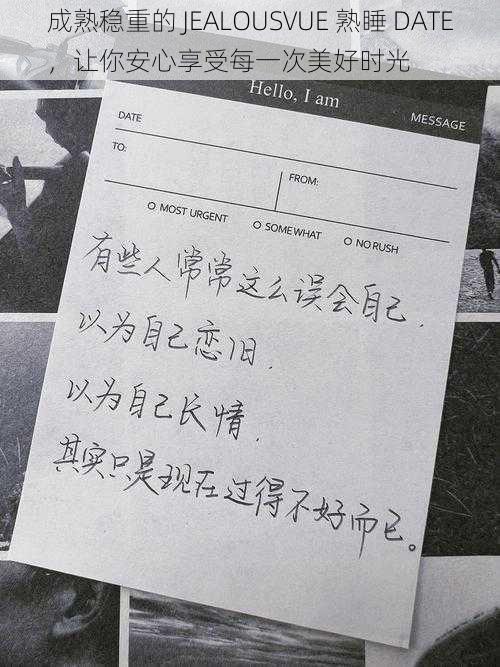 成熟稳重的 JEALOUSVUE 熟睡 DATE
，让你安心享受每一次美好时光
Hello, I am
MESSAGE
DATE
TO:
FROM:
MOST URGENT
SOMEWHAT
NO RUSH
有些人常常这么误会自己.
以为自己恋旧.
以为自己长情.
其实只是现在过得不好而已。